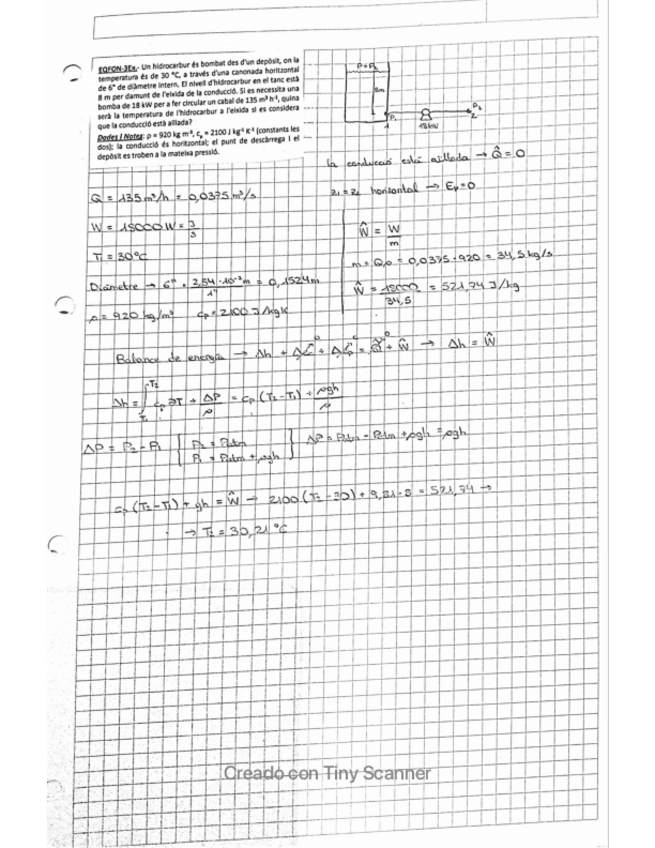 EQFON-3Ex.- Un hidrocarbur és bombat des d'un depòsit, on la
temperatura és de 30 °C, a través d'una canonada horitzontal
de 6" de diàmetre intern. El nivell d'hidrocarbur en el tanc està
8 m per damunt de l'eixida de la conducció. Si es necessita una
bomba de 18 kW per a fer circular un cabal de 135 m³ h⁻¹, quina
serà la temperatura de l'hidrocarbur a l'eixida si es considera
que la conducció està aïllada?
Dades i Notes: ρ = 920 kg m⁻³, cₚ = 2100 J kg⁻¹ K⁻¹ (constants les
dos); la conducció és horitzontal; el punt de descàrrega i el
depòsit es troben a la mateixa pressió.
8m
P₁
1
18kW
P₂
2
la conducció està aïllada → Q̂ = 0
z₁ = z₂ horizontal → Ep = 0
Q = 135 m³/h = 0,0375 m³/s
W = 18000 W = J/s
T₁ = 30 °C
Diámetre → 6" · 2,54 · 10⁻² m / 1" = 0,1524 m
ρ = 920 kg/m³ cp = 2100 J/kg K
Ŵ = W/m
m = Q·ρ = 0,0375 · 920 = 34,5 kg/s
Ŵ = 18000/34,5 = 521,74 J/kg
Balance de energía → Δh + ΔEc + ΔEp = Q̂ + Ŵ → Δh = Ŵ
Δh = ∫ T₁ T₂ cp ∂T + ΔP/ρ = cp (T₂ - T₁) + ρgh/ρ
ΔP = P₂ - P₁ { P₂ = Patm
P₁ = Patm + ρgh } ΔP = Patm - Patm + ρgh = ρgh
cp (T₂ - T₁) + gh = Ŵ → 2100 (T₂ - 30) + 9,81 · 8 = 521,74 →
→ T₂ = 30,21 °C
Creado con Tiny Scanner